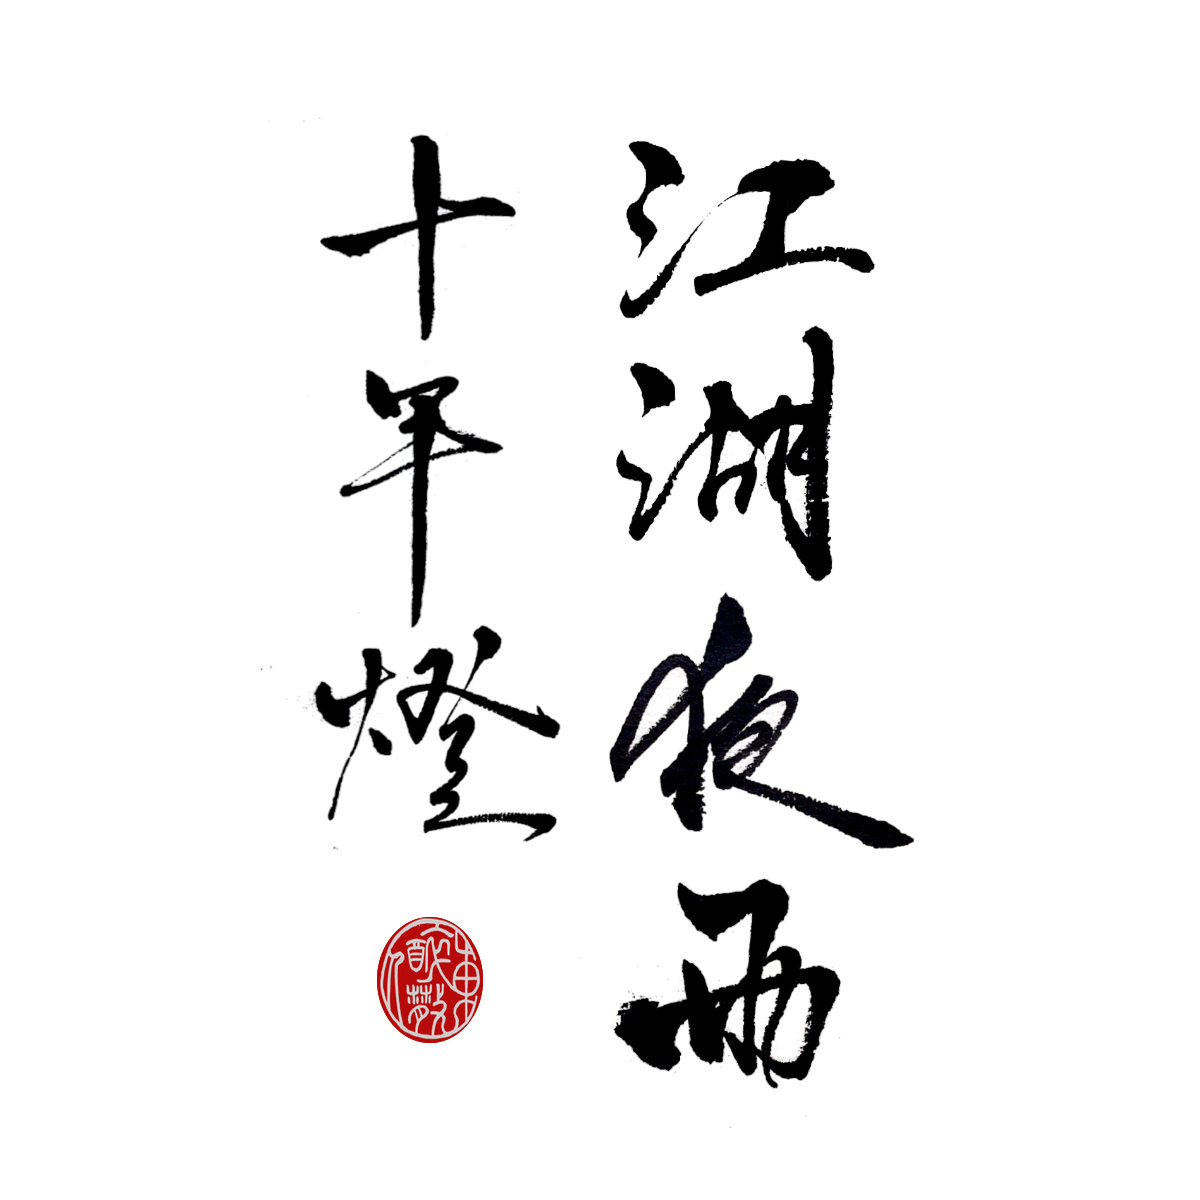 江湖夜雨
十年燈